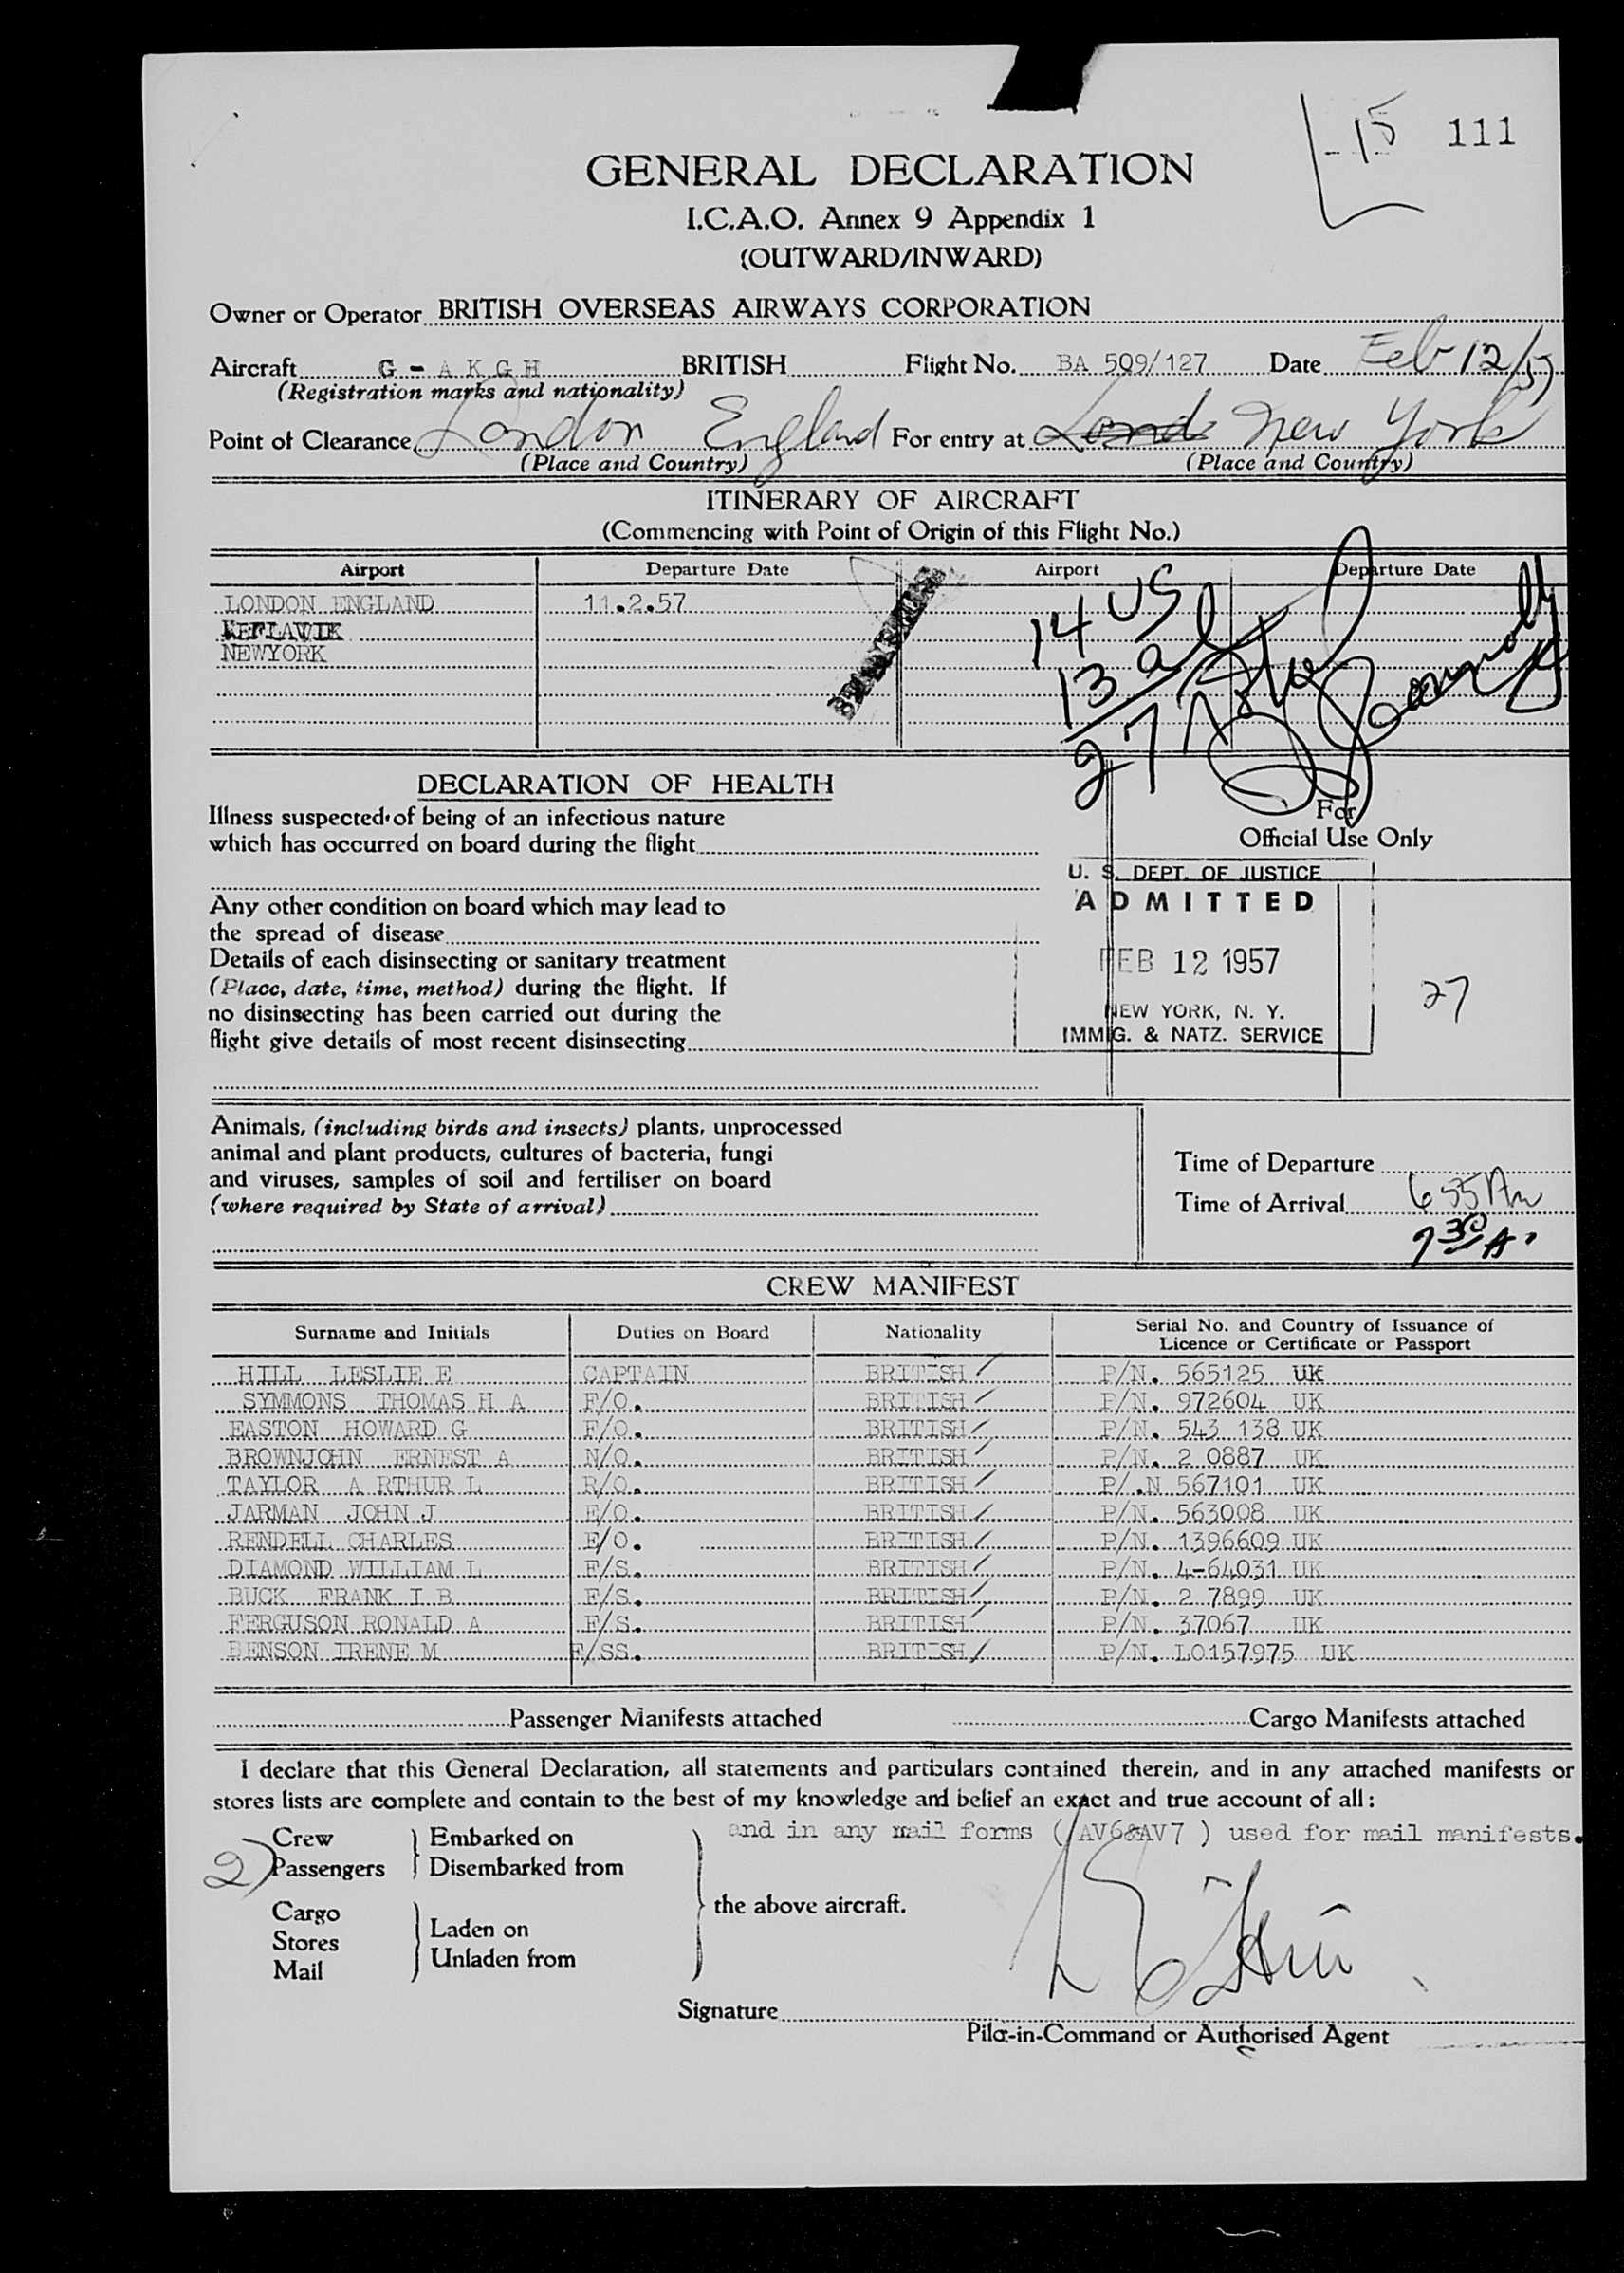 15 111
GENERAL DECLARATION
I.C.A.O. Annex 9 Appendix 1
(OUTWARD/INWARD)
Owner or Operator BRITISH OVERSEAS AIRWAYS CORPORATION
Aircraft G - A K G H BRITISH Flight No. BA 509/127 Date Feb 12/57
(Registration marks and nationality)
Point of Clearance London England For entry at Lond New York
(Place and Country) (Place and Country)
ITINERARY OF AIRCRAFT
(Commencing with Point of Origin of this Flight No.)
Airport Departure Date Airport Departure Date
LONDON ENGLAND 11.2.57
KEFLAVIK
NEWYORK
14 US
13 al
27
DECLARATION OF HEALTH
Illness suspected of being of an infectious nature
which has occurred on board during the flight
For
Official Use Only
Any other condition on board which may lead to
the spread of disease
Details of each disinsecting or sanitary treatment
(Place, date, time, method) during the flight. If
no disinsecting has been carried out during the
flight give details of most recent disinsecting
U. S. DEPT. OF JUSTICE
ADMITTED
FEB 12 1957
NEW YORK, N. Y.
IMMIG. & NATZ. SERVICE
27
Animals, (including birds and insects) plants, unprocessed
animal and plant products, cultures of bacteria, fungi
and viruses, samples of soil and fertiliser on board
(where required by State of arrival)
Time of Departure
Time of Arrival 655 Am
730 A.
CREW MANIFEST
Surname and Initials Duties on Board Nationality Serial No. and Country of Issuance of
Licence or Certificate or Passport
HILL LESLIE E CAPTAIN BRITISH P/N. 565125 UK
SYMMONS THOMAS H A F/O. BRITISH P/N. 972604 UK
EASTON HOWARD G F/O. BRITISH P/N. 543 138 UK
BROWNJOHN ERNEST A N/O. BRITISH P/N. 2 0887 UK
TAYLOR A RTHUR L R/O. BRITISH P/.N 567101 UK
JARMAN JOHN J E/O. BRITISH P/N. 563008 UK
RENDELL CHARLES E/O. BRITISH P/N. 1396609 UK
DIAMOND WILLIAM L F/S. BRITISH P/N. 4-64031 UK
BUCK FRANK I B F/S. BRITISH P/N. 2 7899 UK
FERGUSON RONALD A F/S. BRITISH P/N. 37067 UK
BENSON IRENE M F/SS. BRITISH P/N. LO157975 UK
Passenger Manifests attached Cargo Manifests attached
I declare that this General Declaration, all statements and particulars contained therein, and in any attached manifests or
stores lists are complete and contain to the best of my knowledge and belief an exact and true account of all:
and in any mail forms ( AV6&AV7 ) used for mail manifests.
Crew Embarked on
2 Passengers Disembarked from
the above aircraft.
Cargo
Stores Laden on
Mail Unladen from
Signature
Pilot-in-Command or Authorised Agent